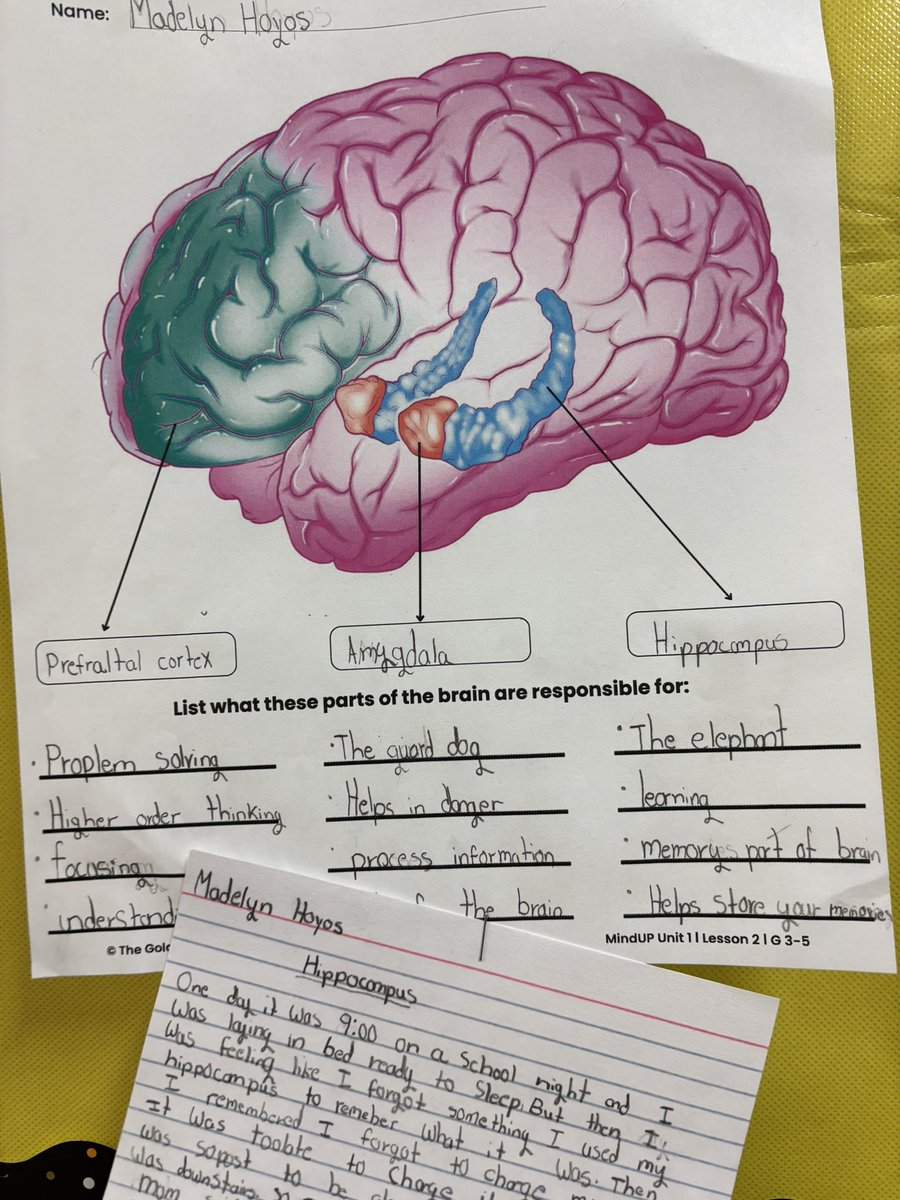 Name: Madelyn Hoyos
Prefraltal cortex
Amygdala
Hippocampus
List what these parts of the brain are responsible for:
· Proplem solving
· The guard dog
· The elephant
· Higher order thinking
· Helps in danger
· learning
· focusing
· process information
· memory part of brain
· understandi
the brain
· Helps store your memories
© The Gold
MindUP Unit 1 | Lesson 2 | G 3-5
Madelyn Hoyos
Hippocampus
One day it was 9:00 on a school night and I
was laying in bed ready to sleep. But then I
was feeling like I forgot something I used my
hippocampus to remeber what it was. Then
I remembered I forgot to charge
It was toolate to charge
was sopost to be
was downstairs
mom